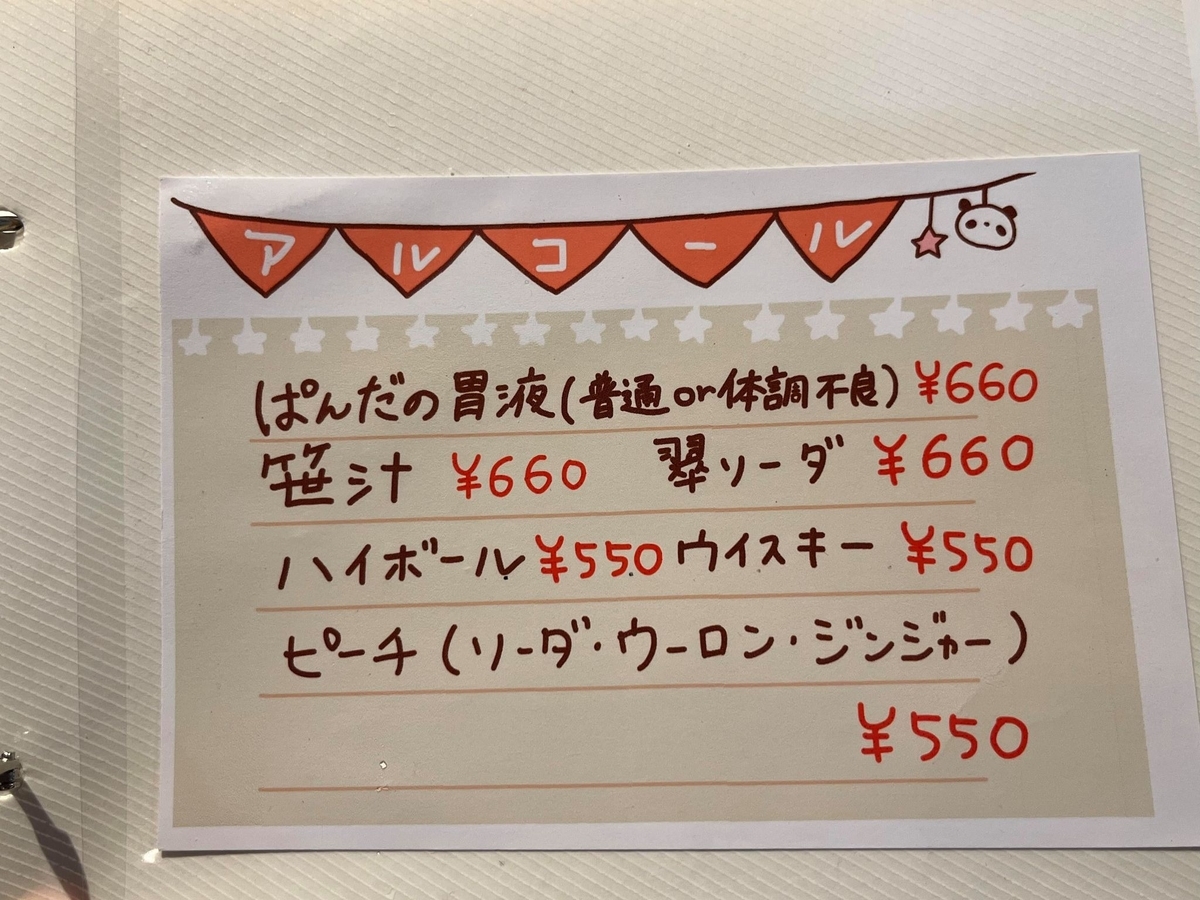 アルコール
ぱんだの胃液(普通or体調不良) ¥660
笹汁 ¥660 翠ソーダ ¥660
ハイボール ¥550 ウイスキー ¥550
ピーチ(ソーダ・ウーロン・ジンジャー)
¥550